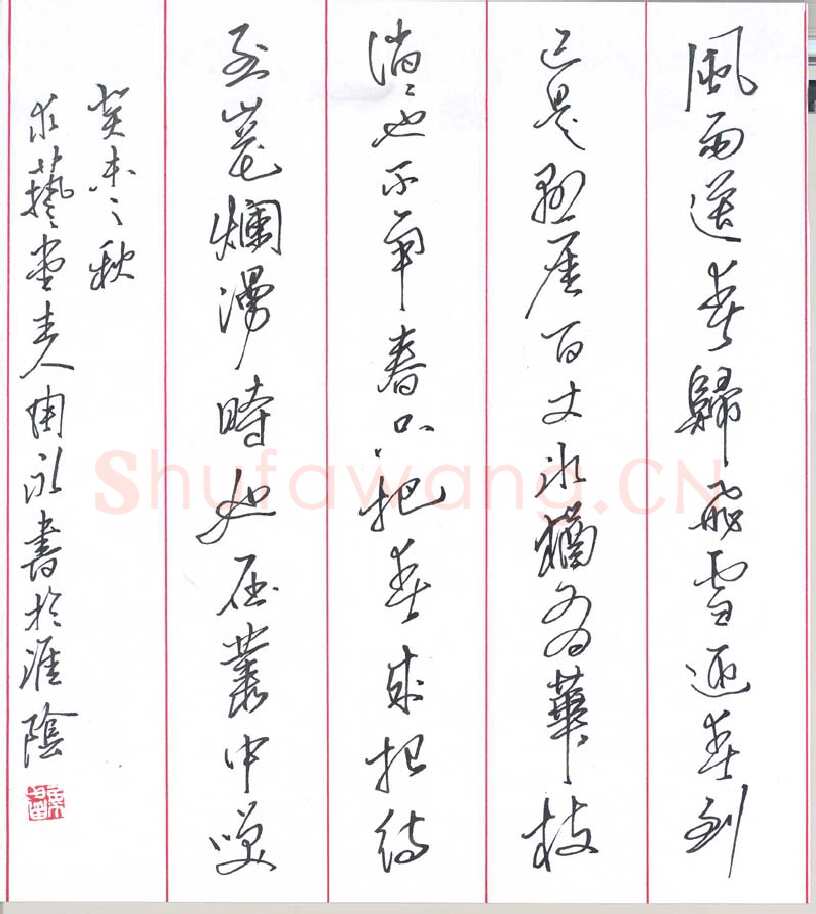 風雨送春歸飛雪迎春到
已是懸崖百丈冰猶有華枝
俏〻也不爭春只把春來報待
到山花爛漫時她在叢中咲
癸未之秋
求藝堂主人周永書於淮陰
Shufawang.CN